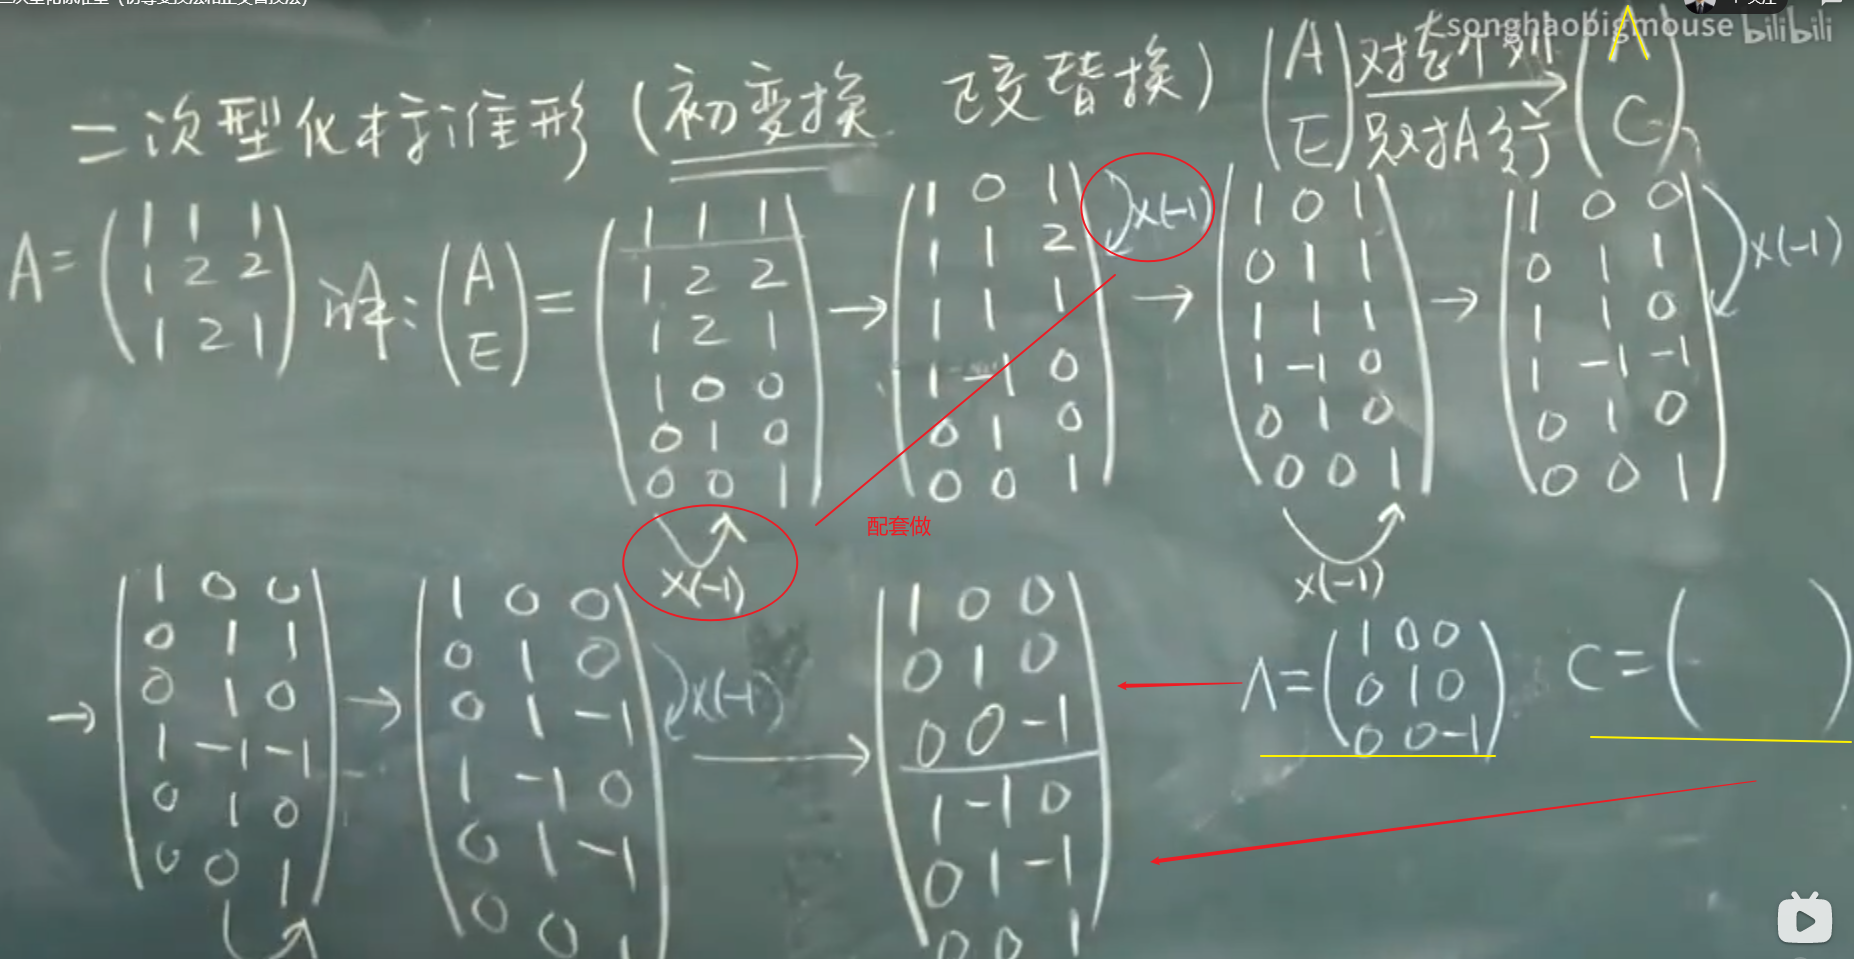 二次型化标准形（初变换 正交替换）
songhaobigmouse bilibili
(A E) 对整个列 只对A行 (Λ C)
A= (1 1 1
1 2 2
1 2 1)
解: (A E) =
1 1 1
1 2 2
1 2 1
1 0 0
0 1 0
0 0 1
×(-1)
→
1 0 1
1 1 2
1 1 1
1 -1 0
0 1 0
0 0 1
×(-1)
→
1 0 1
0 1 1
1 1 1
1 -1 0
0 1 0
0 0 1
×(-1)
→
1 0 0
0 1 1
1 1 0
1 -1 -1
0 1 0
0 0 1
×(-1)
配套做
→
1 0 0
0 1 1
0 1 0
1 -1 -1
0 1 0
0 0 1
→
1 0 0
0 1 0
0 1 -1
1 -1 0
0 1 -1
0 0 1
×(-1)
→
1 0 0
0 1 0
0 0 -1
1 -1 0
0 1 -1
0 0 1
Λ= (1 0 0
0 1 0
0 0 -1)
C= ( )